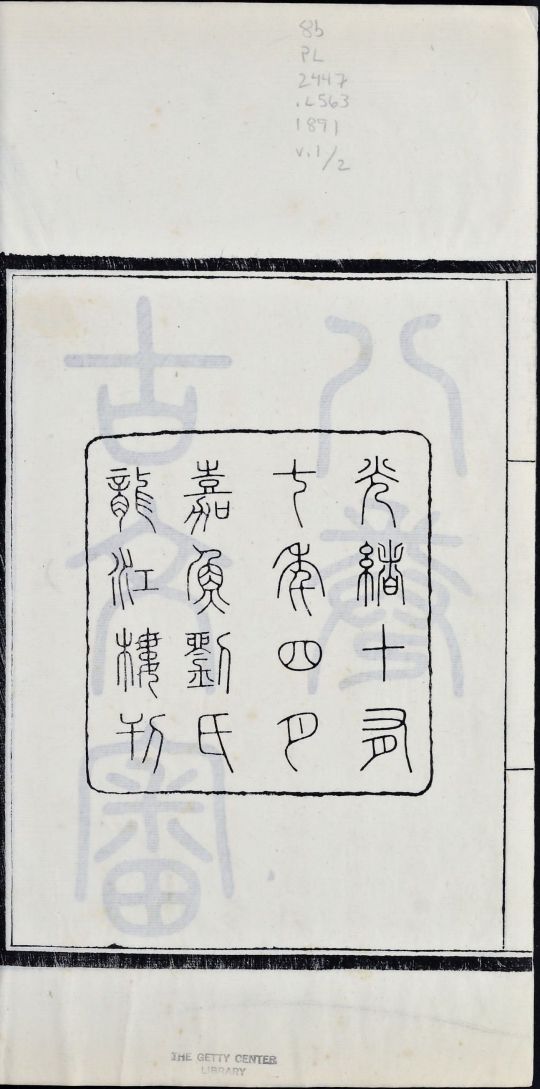 8b
PL
2447
.L563
1891
v.1/2
光緒十有
七年四月
嘉魚劉氏
龍江樓刊
古文審
八卷
THE GETTY CENTER
LIBRARY